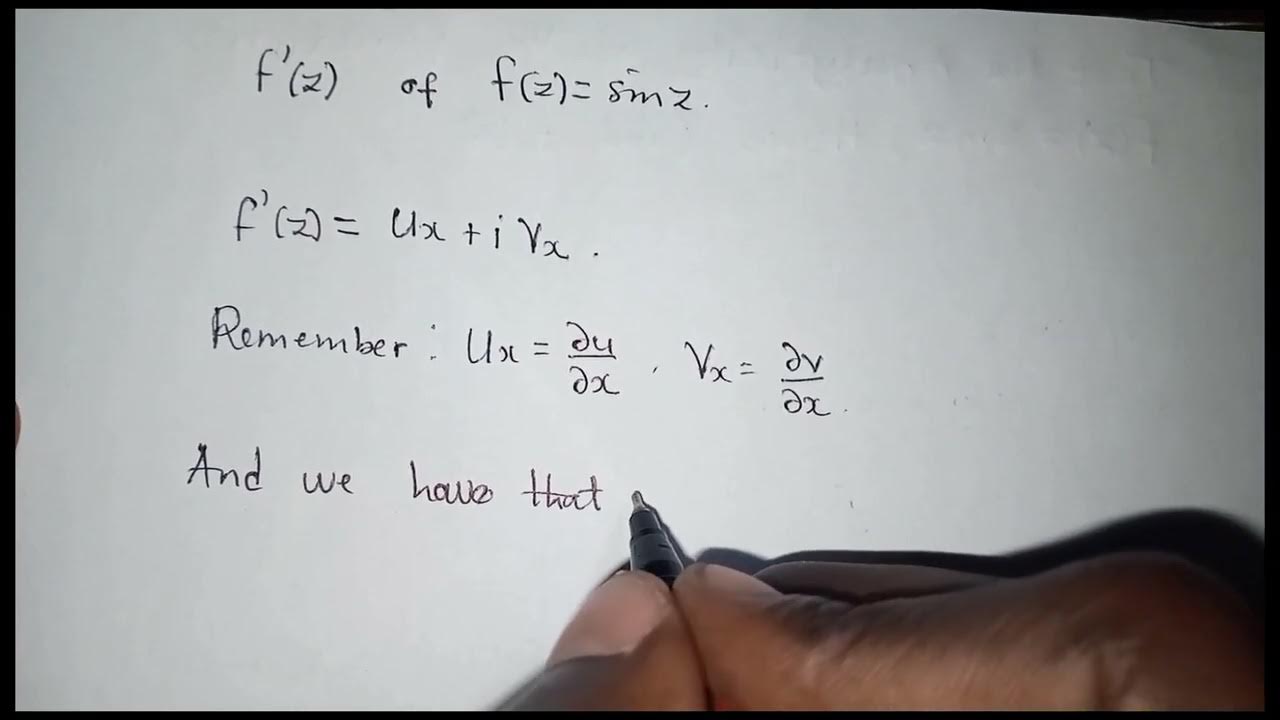 f'(z) of f(z) = sin z.
f'(z) = Ux + i Vx .
Remember : Ux = ∂u/∂x . Vx = ∂v/∂x .
And we have that